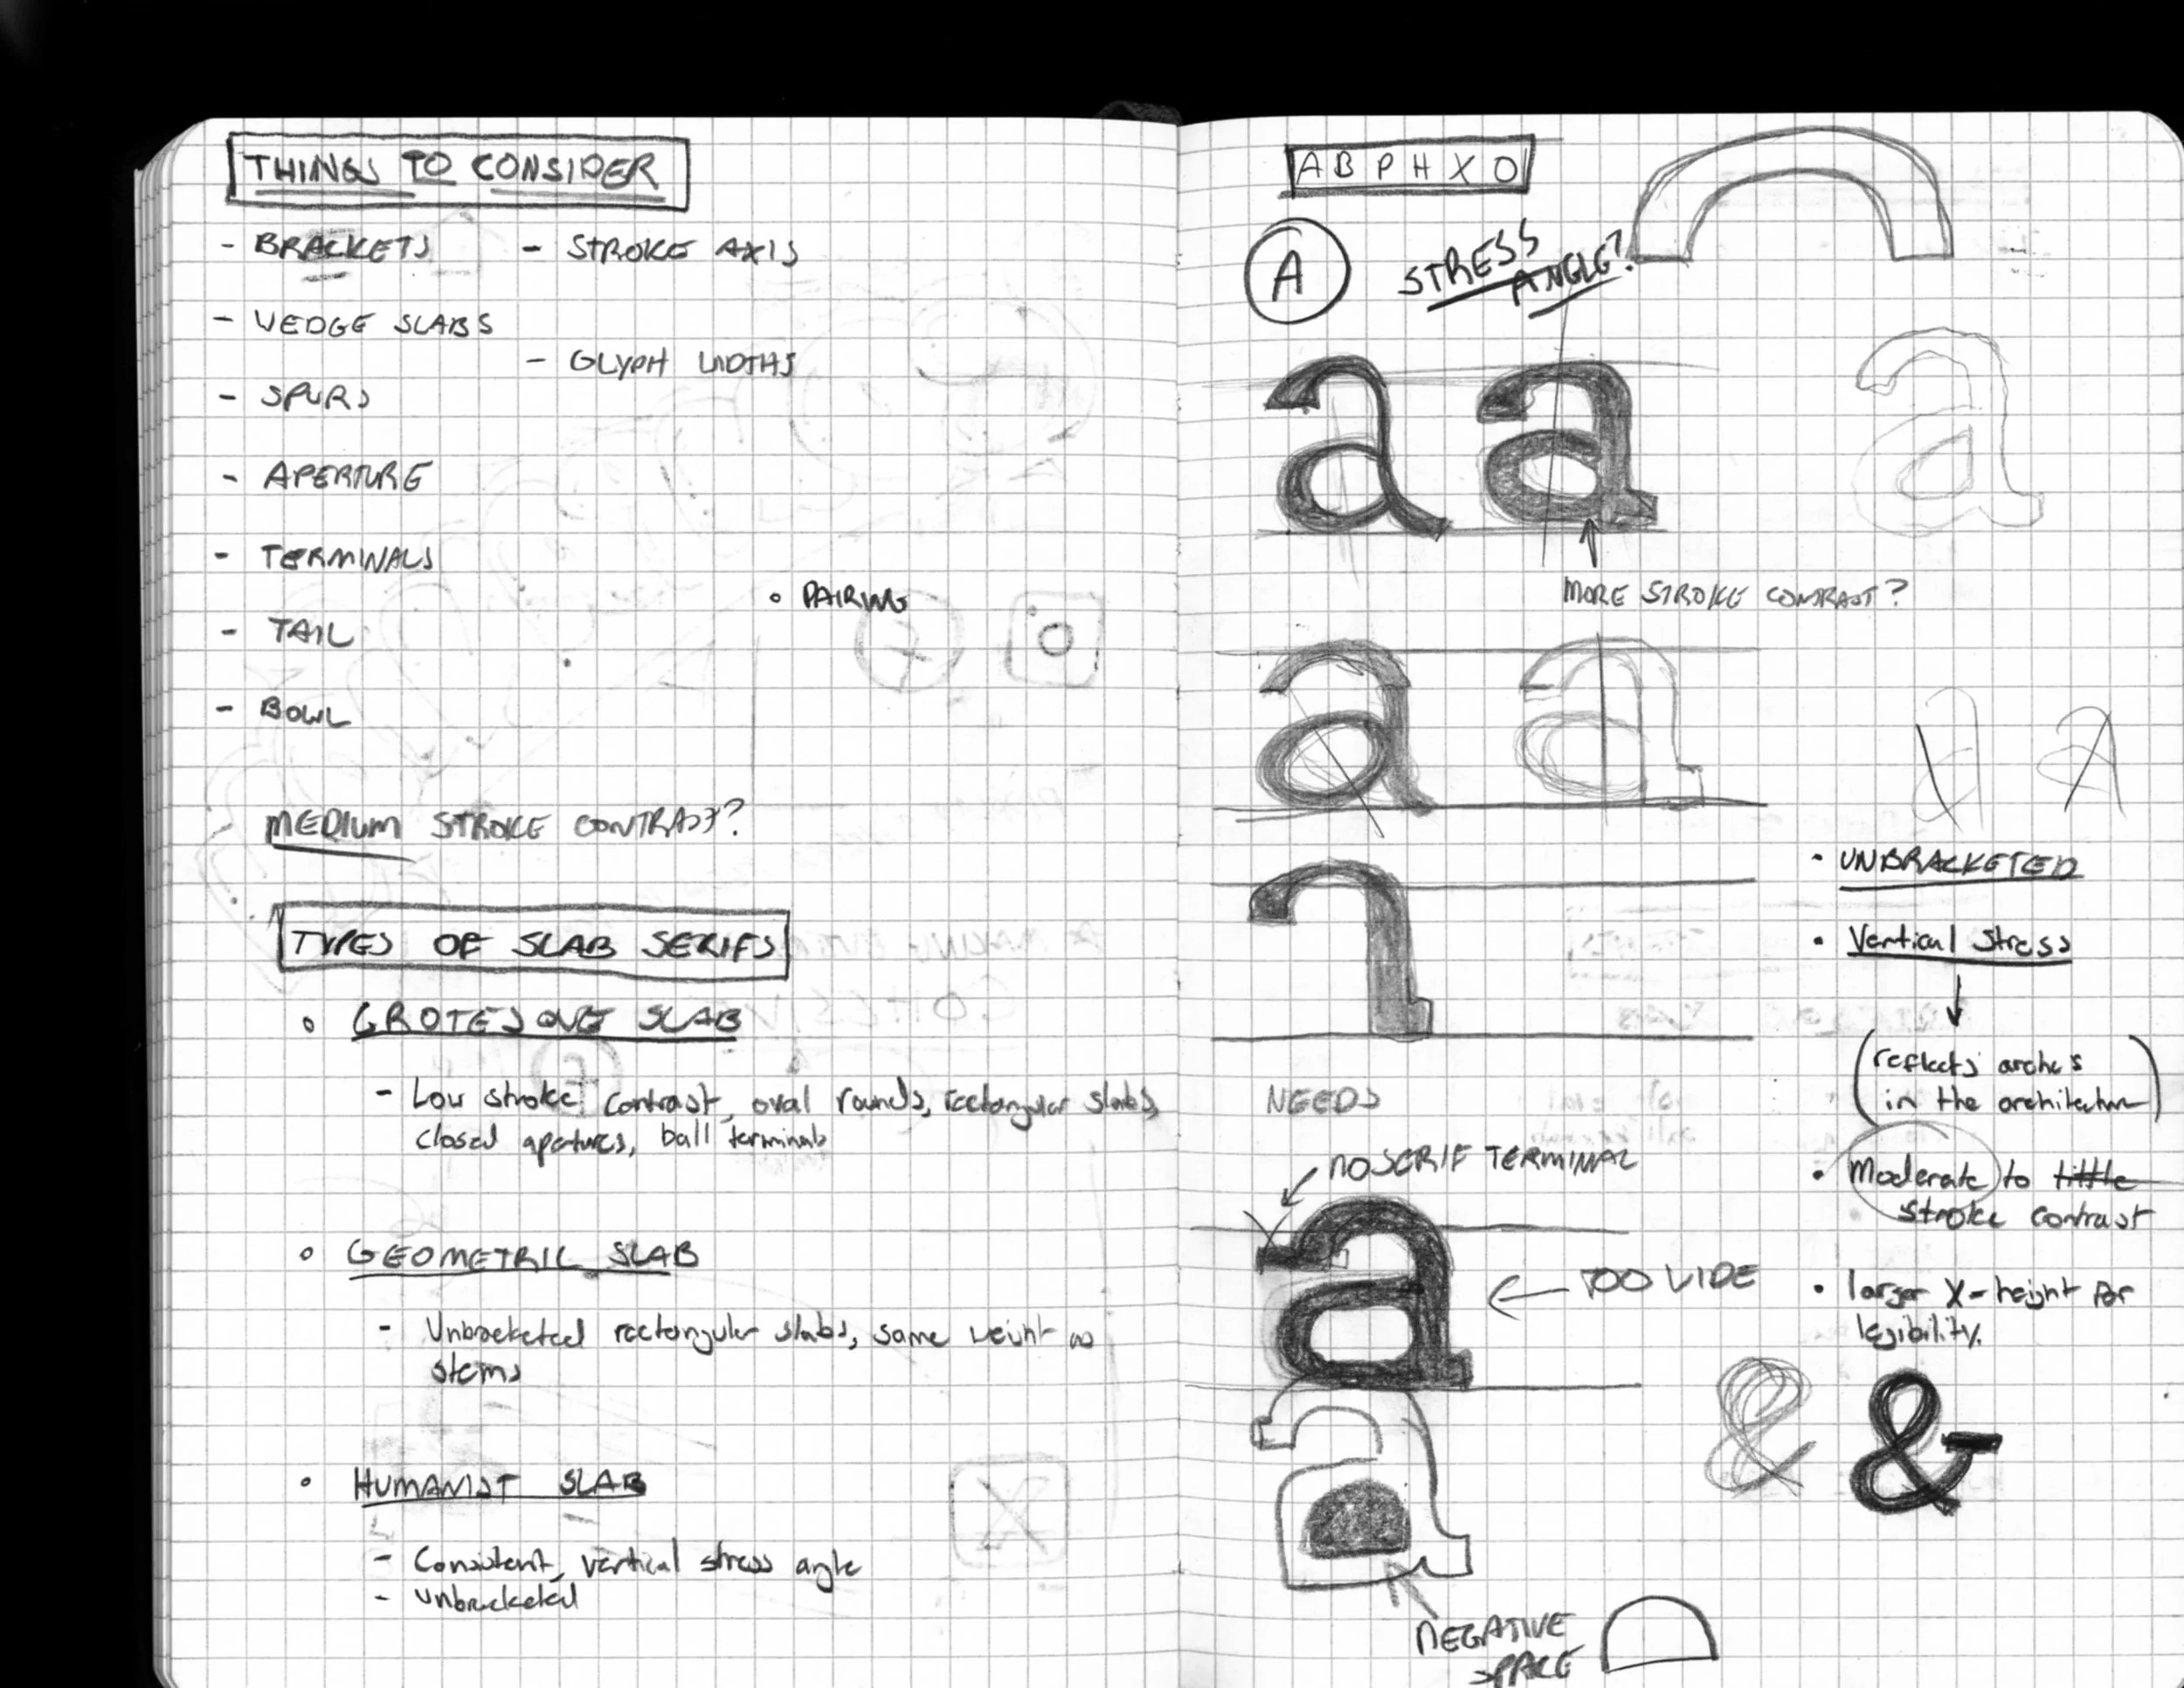 THINGS TO CONSIDER
- BRACKETS
- STROKE AXIS
- WEDGE SLABS
- GLYPH WIDTHS
- SPURS
- APERTURE
- TERMINALS
• PAIRING
- TAIL
- BOWL
MEDIUM STROKE CONTRAST?
TYPES OF SLAB SERIFS
• GROTESQUE SLAB
- Low stroke contrast, oval rounds, rectangular slabs,
closed apertures, ball terminals
• GEOMETRIC SLAB
- Unbracketed rectangular slabs, same weight as
stems
• HUMANIST SLAB
- Consistent, vertical stress angle
- unbracketed
A B P H X O
A
STRESS
ANGLE?
a a a
MORE STROKE CONTRAST?
a a
• UNBRACKETED
• Vertical Stress
(reflects arches
in the architecture)
NEEDS
NO SERIF TERMINAL
• Moderate to little
stroke contrast
a
TOO WIDE
• larger X-height for
legibility.
& &
a
NEGATIVE
SPACE